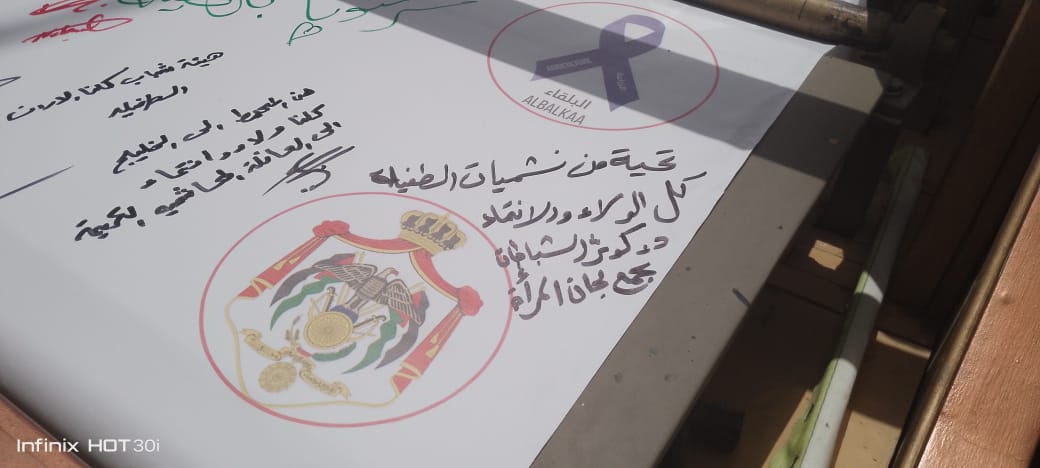 هيئة شباب كلنا الاردن
الطفيله
من المحيط الى الخليج
كلنا ولاء وانتماء
الى العائلة الهاشمية الكريمة
البلقاء
ALBALKAA
تحية من نشميات الطفيلة
كل الولاء والانتماء
د. كوثر الشباطات
تجمع لجان المرأة
Infinix HOT 30i